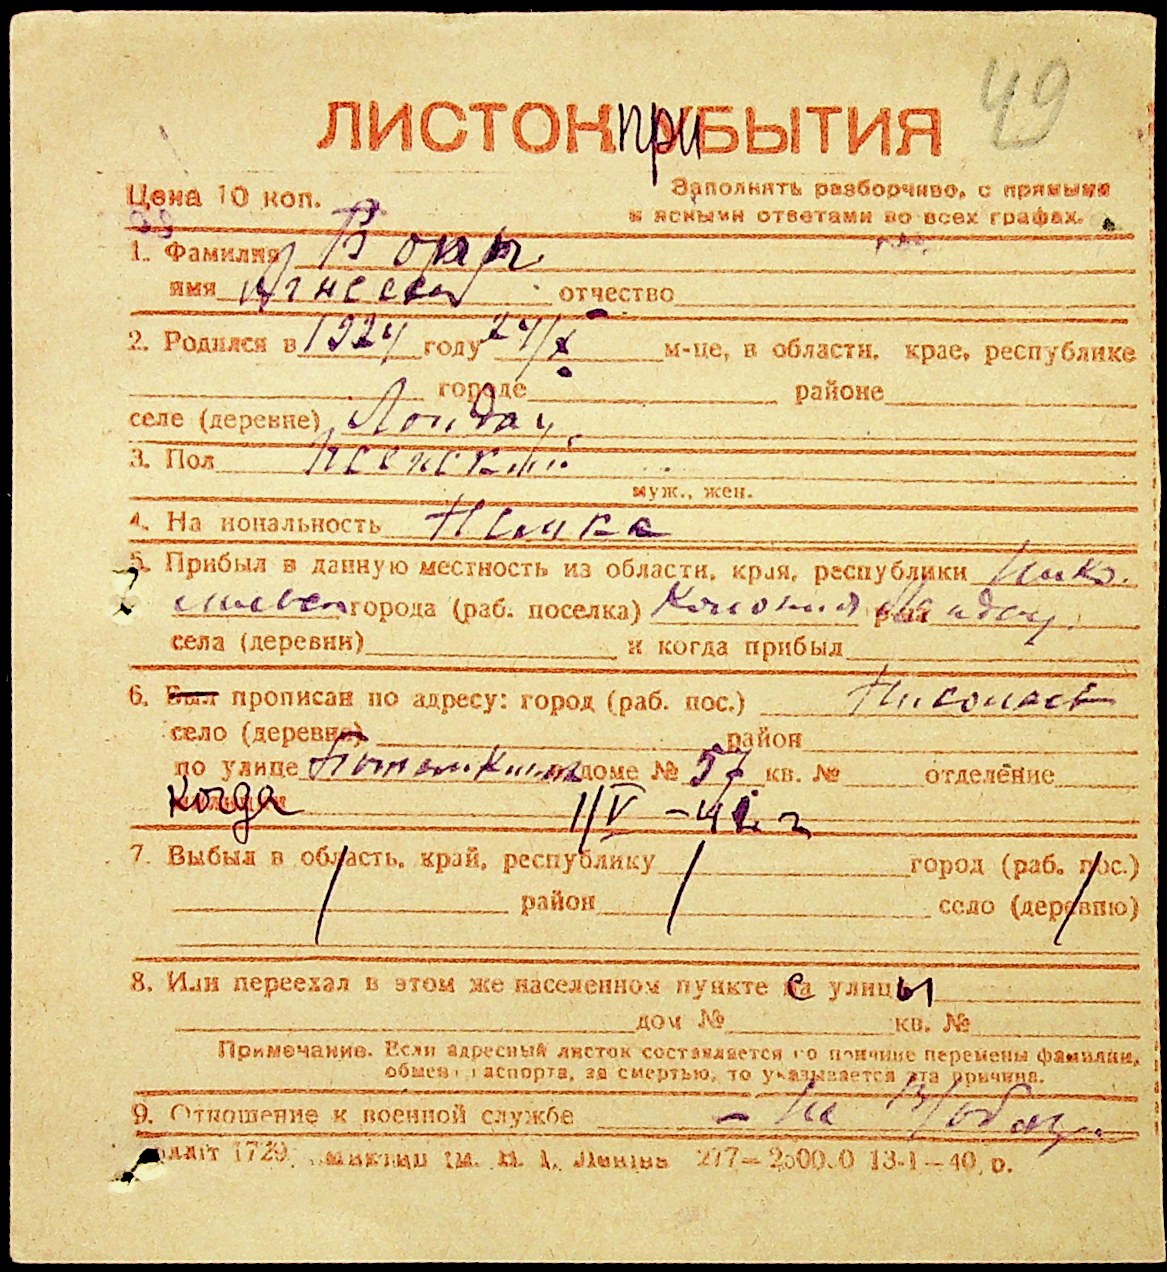 49
ЛИСТОК ПРИБЫТИЯ
Цена 10 коп.
Заполнять разборчиво, с прямыми
и ясными ответами во всех графах.
1. Фамилия
имя Агнесса отчество
2. Родился в 1924 году 24/X м-це, в области, крае, республике
городе районе
селе (деревне) Ландау
3. Пол женский
муж., жен.
4. На иональность Немка
5. Прибыл в данную местность из области, края, республики Нико-
лаевск города (раб. поселка) Колония Ландау
села (деревни) и когда прибыл
6. Был прописан по адресу: город (раб. пос.) Николаев
село (деревне) район
по улице доме № 57 кв. № отделение
когда 1/V - 42 г
7. Выбыл в область, край, республику город (раб. пос.)
район село (деревню)
8. Или переехал в этом же населенном пункте с улицы
дом № кв. №
Примечание. Если адресный листок составляется по причине перемены фамилии,
обмен паспорта, за смертью, то указывается эта причина.
9. Отношение к военной службе - не
1729. Ленина 277— 13-1—40 р.